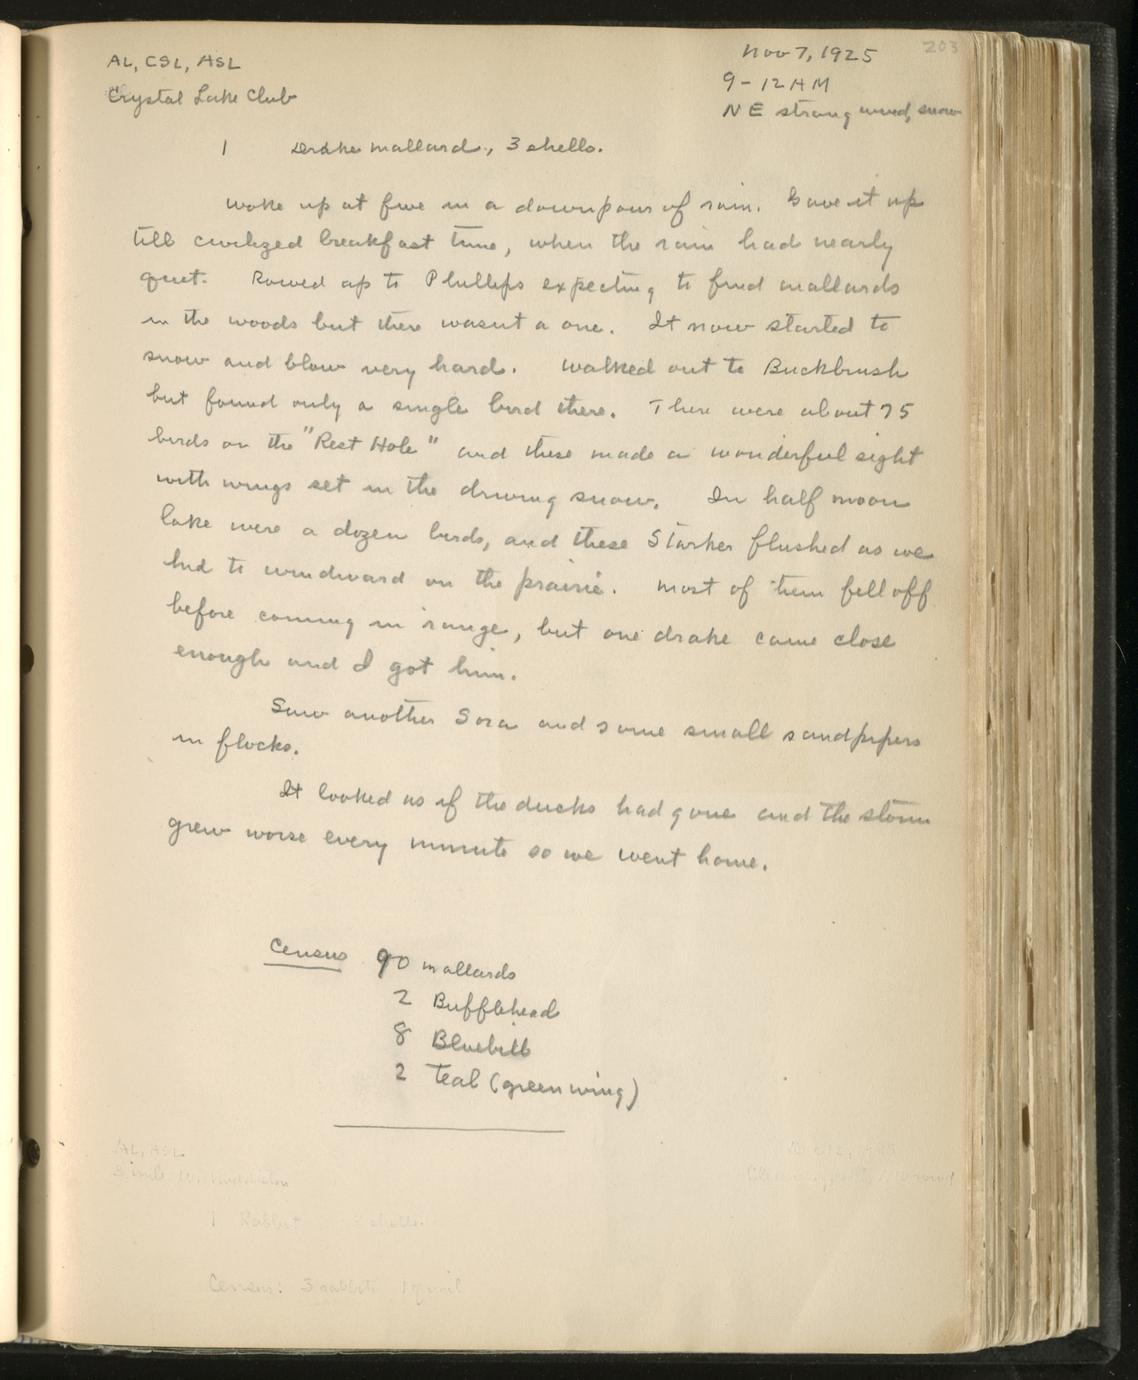 203
AL, CSL, ASL
Nov 7, 1925
Crystal Lake Club
9-12 AM
NE strong wind, snow
1 Drake mallard, 3 shells.
woke up at five in a downpour of rain. Gave it up
till civilized breakfast time, when the rain had nearly
quit. Rowed up to Phillips expecting to find mallards
in the woods but there wasnt a one. It now started to
snow and blow very hard. Walked out to Buckbrush
but found only a single bird there. There were about 75
birds on the "Rest Hole" and these made a wonderful sight
with wings set in the driving snow. In half moon
lake were a dozen birds, and these Starker flushed as we
hid to windward on the prairie. Most of them fell off
before coming in range, but one drake came close
enough and I got him.
Saw another Sora and some small sandpipers
in flocks.
It looked as if the ducks had gone and the storm
grew worse every minute so we went home.
Census 90 mallards
2 Bufflehead
8 Bluebill
2 Teal (greenwing)
AL, ASL
1 Rabbit 2 shells.
Census: 3 rabbits 1 quail